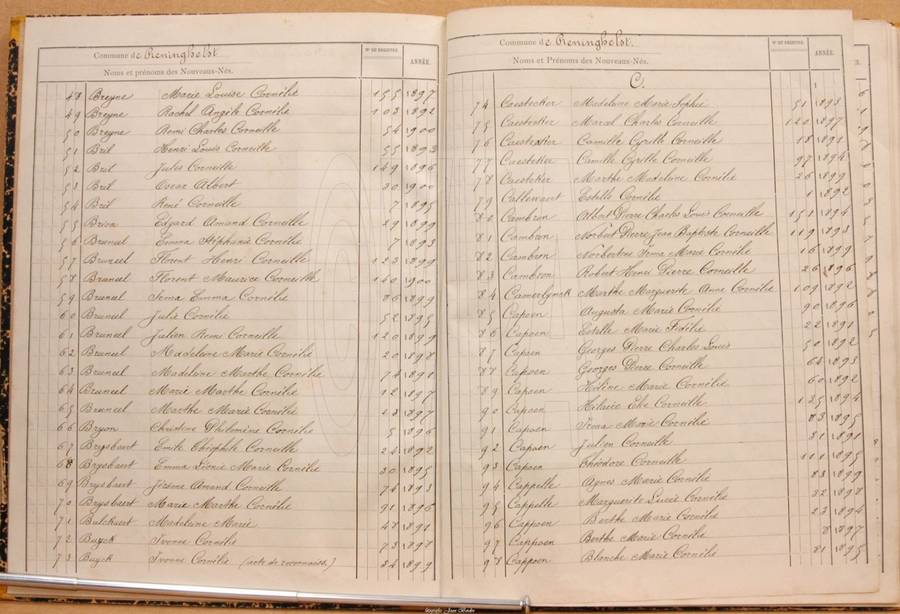 Commune de Reninghelst. N° DU REGISTRE ANNÉE.
Noms et prénoms des Nouveaux-Nés.
48 Breyne Marie Louise Cornélie 155 1897
49 Breyne Rachel Angèle Cornélie 103 1892
50 Breyne Remi Charles Corneille 54 1900
51 Bril Henri Louis Corneille 55 1893
52 Bril Jules Corneille 149 1896
53 Bril Oscar Albert 30 1900
54 Bril René Corneille 7 1895
55 Brion Edgard Amand Corneille 29 1899
56 Bruneel Emma Stéphanie Cornélie 7 1893
57 Bruneel Florent Henri Corneille 123 1899
58 Bruneel Florent Maurice Corneille 140 1900
59 Bruneel Irma Emma Cornélie 86 1899
60 Bruneel Julie Cornélie 52 1895
61 Bruneel Julien Remi Corneille 120 1899
62 Bruneel Madeleine Marie Cornélie 20 1898
63 Bruneel Madeleine Marthe Cornélie 74 1891
64 Bruneel Marie Marthe Cornélie 12 1897
65 Bruneel Marthe Marie Cornélie 23 1897
66 Bryon Christine Philomène Cornélie 5 1896
67 Brysbaert Emile Théophile Corneille 24 1892
68 Brysbaert Emma Léonie Marie Cornélie 30 1895
69 Brysbaert Jérôme Amand Corneille 76 1893
70 Brysbaert Marie Marthe Cornélie 91 1896
71 Bulckaert Madeleine Marie 48 1891
72 Buyck Ivonne Cornélie 73 1898
73 Buyck Ivonne Cornélie (acte de reconnaiss.) 34 1899
Commune de Reninghelst. N° DU REGISTRE ANNÉE.
Noms et Prénoms des Nouveaux-Nés.
C.
74 Caestecker Madeleine Marie Sophie 51 1893
75 Caestecker Marcel Charles Corneille 120 1897
76 Caestecker Camille Cyrille Corneille 18 1891
77 Caestecker Camille Cyrille Corneille 97 1894
78 Caestecker Marthe Madeleine Cornélie 26 1899
79 Callewaert Estelle Cornélie 1 1892
80 Cambron Albert Pierre Charles Louis Corneille 151 1894
81 Cambron Norbert Pierre Jean Baptiste Corneille 119 1893
82 Cambron Norbertine Irma Marie Cornélie 16 1899
83 Cambron Robert Henri Pierre Corneille 26 1896
84 Camerlynck Marthe Marguerite Anne Cornélie 109 1892
85 Capoen Augusta Marie Cornélie 90 1896
86 Capoen Estelle Marie Fidélie 22 1891
87 Capoen Georges Pierre Charles Louis 50 1892
87 Capoen Georges Pierre Corneille 64 1893
89 Capoen Hélène Marie Cornélie 60 1892
90 Capoen Hilaire Elie Corneille 125 1894
91 Capoen Irma Marie Cornélie 83 1895
92 Capoen Julien Corneille 31 1891
93 Capoen Théodore Corneille 111 1895
94 Cappelle Agnes Marie Cornélie 83 1899
95 Cappelle Marguerite Lucie Cornélie 32 1898
96 Cappoen Berthe Marie Cornélie 23 1894
97 Cappoen Berthe Marie Cornélie 8 1897
98 Cappoen Blanche Marie Cornélie 81 1895